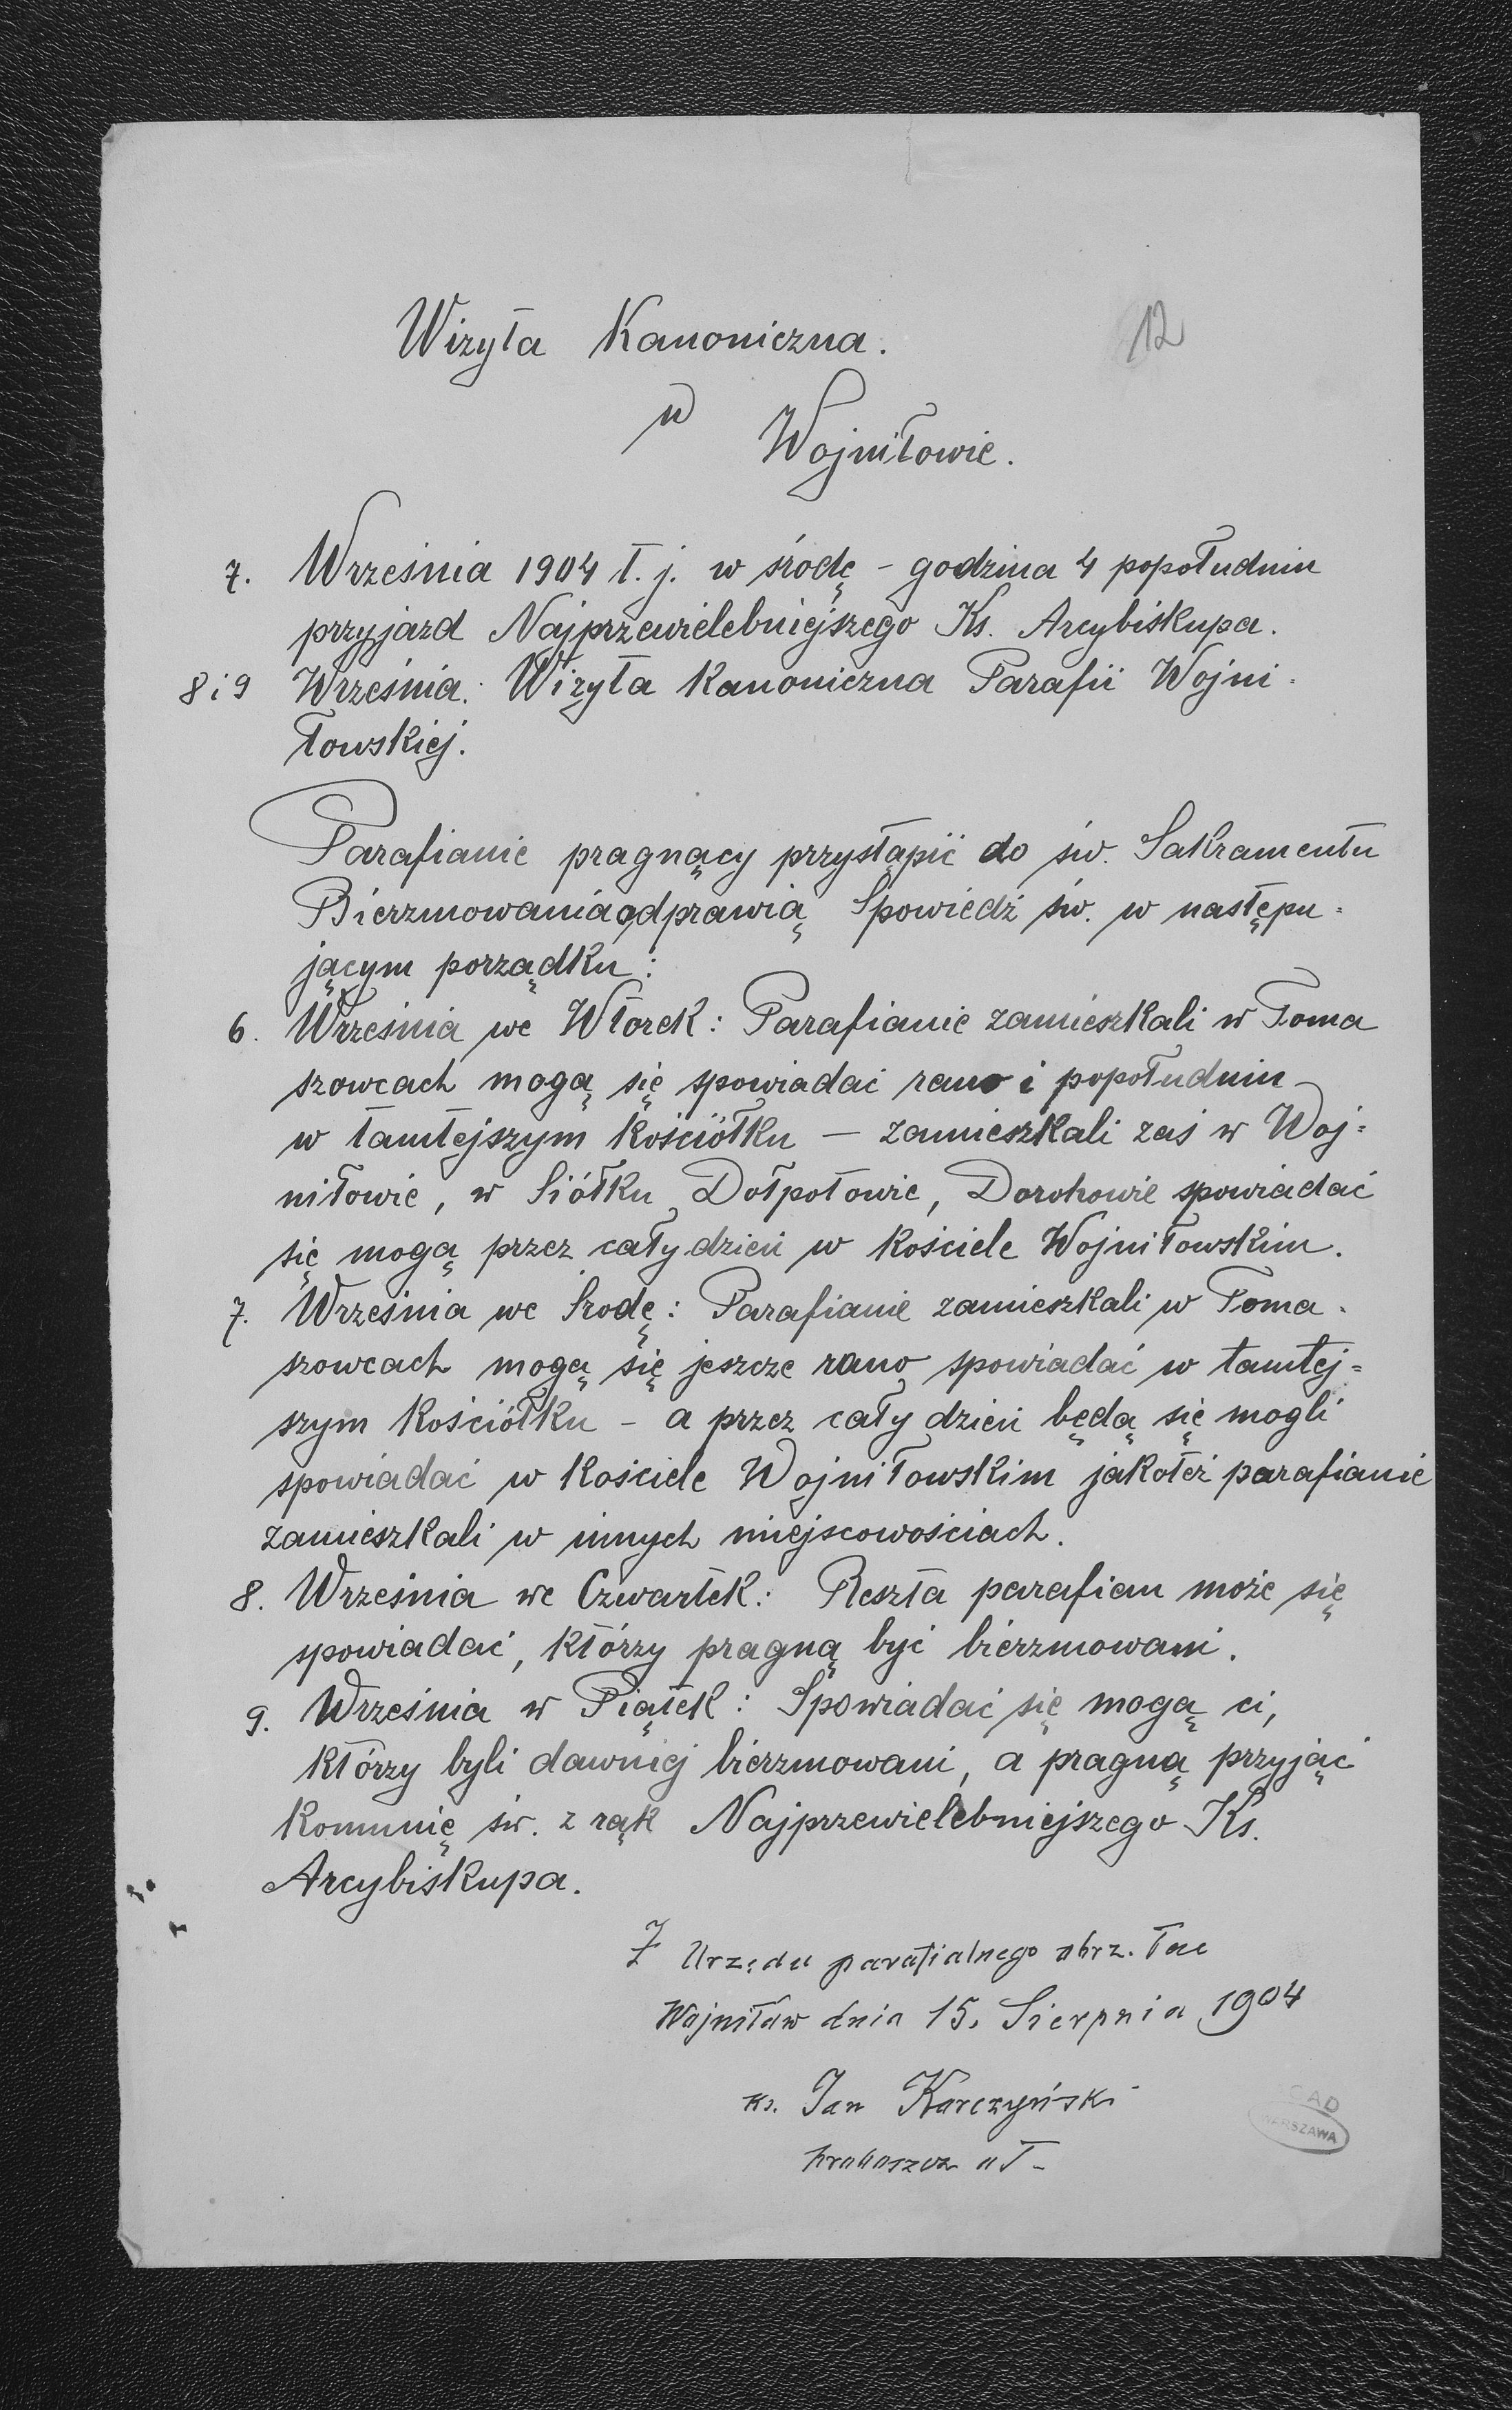 Wizyta Kanoniczna.
12
w
Wojniłowie.
7. Września 1904 t. j. w środę - godzina 4 popołudniu
przyjazd Najprzewielebniejszego Ks. Arcybiskupa.
8 i 9 Września: Wizyta Kanoniczna Parafii Wojni-
łowskiej.
Parafianie pragnący przystąpić do św. Sakramentu
Bierzmowania odprawią Spowiedź św. w następu-
jącym porządku:
6. Września we Wtorek: Parafianie zamieszkali w Toma
szowcach mogą się spowiadać rano i popołudniu
w tamtejszym Kościółku — zamieszkali zaś w Woj=
niłowie, w Siółku, Dołpotowie, Dorohowie spowiadać
się mogą przez cały dzień w Kościele Wojniłowskim.
7. Września we Środę: Parafianie zamieszkali w Toma-
szowcach mogą się jeszcze rano spowiadać w tamtej=
szym Kościółku - a przez cały dzień będą się mogli
spowiadać w Kościele Wojniłowskim jakoteż parafianie
zamieszkali w innych miejscowościach.
8. Września we Czwartek: Reszta parafian może się
spowiadać, którzy pragną być bierzmowani.
9. Września w Piątek: Spowiadać się mogą ci,
którzy byli dawniej bierzmowani, a pragną przyjąć
Komunię św. z rąk Najprzewielebniejszego Ks.
Arcybiskupa.
Z Urzędu parafialnego obrz. łac
Wojniłów dnia 15. Sierpnia 1904
Ks. Jan Karczyński
proboszcz
CAD
WARSZAWA